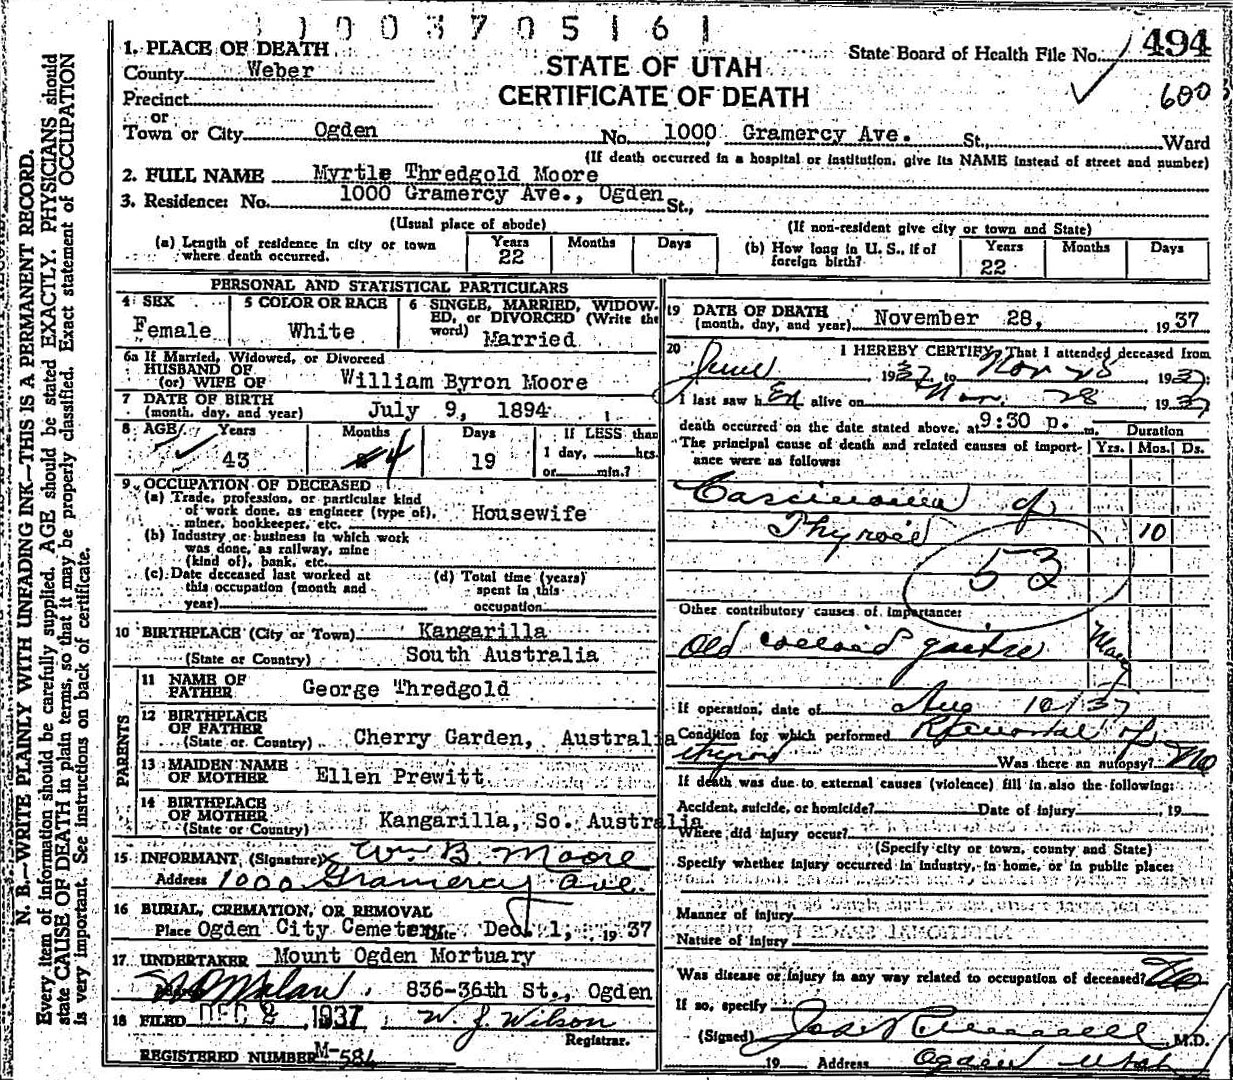 1003705161
1. PLACE OF DEATH
County Weber
STATE OF UTAH
CERTIFICATE OF DEATH
State Board of Health File No. 494
600
Precinct
or
Town or City Ogden No. 1000 Gramercy Ave. St., Ward
(If death occurred in a hospital or institution, give its NAME instead of street and number)
2. FULL NAME Myrtle Thredgold Moore
3. Residence: No. 1000 Gramercy Ave., Ogden St.,
(Usual place of abode) (If non-resident give city or town and State)
(a) Length of residence in city or town where death occurred. Years 22 Months Days
(b) How long in U. S., if of foreign birth? Years 22 Months Days
PERSONAL AND STATISTICAL PARTICULARS
4 SEX Female
5 COLOR OR RACE White
6 SINGLE, MARRIED, WIDOWED, or DIVORCED (Write the word) Married
6a If Married, Widowed, or Divorced
HUSBAND OF
(or) WIFE OF William Byron Moore
7 DATE OF BIRTH
(month, day, and year) July 9, 1894
8 AGE Years 43 Months 4 Days 19 If LESS than 1 day, hrs. or min.?
9 OCCUPATION OF DECEASED
(a) Trade, profession, or particular kind
of work done, as engineer (type of),
miner, bookkeeper, etc. Housewife
(b) Industry or business in which work
was done, as railway, mine
(kind of), bank, etc.
(c) Date deceased last worked at
this occupation (month and
year)
(d) Total time (years)
spent in this
occupation
10 BIRTHPLACE (City or Town) Kangarilla
(State or Country) South Australia
PARENTS
11 NAME OF
FATHER George Thredgold
12 BIRTHPLACE
OF FATHER
(State or Country) Cherry Garden, Australia
13 MAIDEN NAME
OF MOTHER Ellen Prewitt
14 BIRTHPLACE
OF MOTHER
(State or Country) Kangarilla, So. Australia
15 INFORMANT, (Signature) x Wm B. Moore
Address 1000 Gramercy Ave.
16 BURIAL, CREMATION, OR REMOVAL
Place Ogden City Cemetery Date Dec. 1, 1937
17. UNDERTAKER Mount Ogden Mortuary
Address 836-36th St., Ogden
18 FILED DEC 2 1937 W. J. Wilson
Registrar.
REGISTERED NUMBER M-584
19 DATE OF DEATH
(month, day, and year) November 28, 1937
20 I HEREBY CERTIFY, That I attended deceased from
June 1937 to Nov 28 1937
I last saw her alive on Nov. 28 1937
death occurred on the date stated above, at 9:30 p. m. Duration
The principal cause of death and related causes of importance were as follows: Yrs. Mos. Ds.
Carcinoma of
Thyroid 10
53
Other contributory causes of importance:
Old colloid goitre Many
If operation, date of Aug 10/37
Condition for which performed Removal of
thyroid Was there an autopsy? No
If death was due to external causes (violence) fill in also the following:
Accident, suicide, or homicide? Date of injury , 19
Where did injury occur?
(Specify city or town, county and State)
Specify whether injury occurred in industry, in home, or in public place:
Manner of injury
Nature of injury
Was disease or injury in any way related to occupation of deceased? No
If so, specify
(Signed) M.D.
19 Address Ogden Utah
N. B.—WRITE PLAINLY WITH UNFADING INK—THIS IS A PERMANENT RECORD.
Every item of information should be carefully supplied. AGE should be stated EXACTLY. PHYSICIANS should
state CAUSE OF DEATH in plain terms, so that it may be properly classified. Exact statement of OCCUPATION
is very important. See instructions on back of certificate.